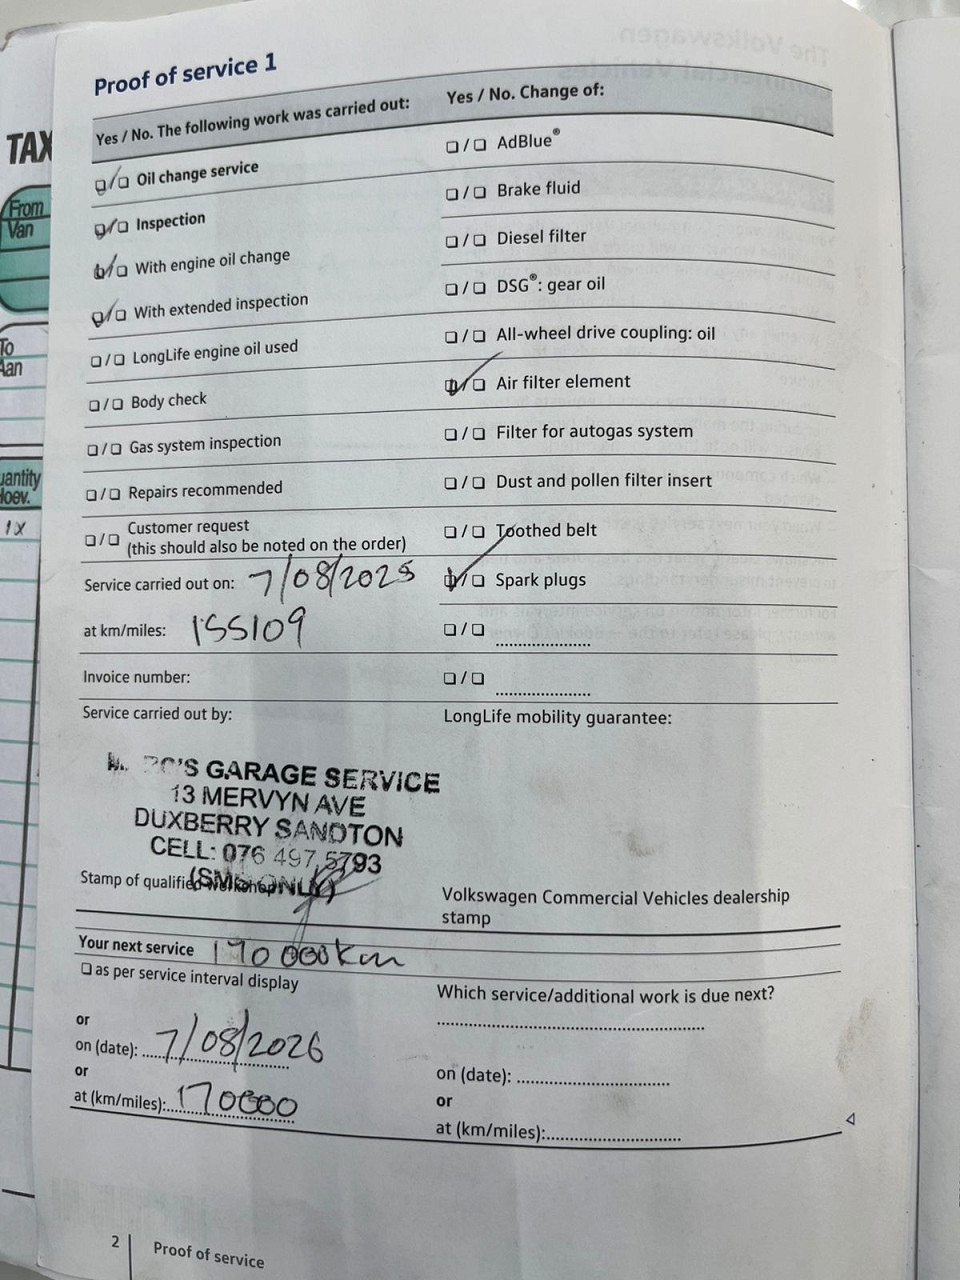 TAX
From
Van
To
Aan
uantity
Hoev.
1X
Proof of service 1
Yes / No. The following work was carried out:
☑/☐ Oil change service
☑/☐ Inspection
☑/☐ With engine oil change
☑/☐ With extended inspection
☐/☐ LongLife engine oil used
☐/☐ Body check
☐/☐ Gas system inspection
☐/☐ Repairs recommended
☐/☐ Customer request
(this should also be noted on the order)
Service carried out on: 7/08/2025
at km/miles: 155109
Invoice number:
Service carried out by:
GARAGE SERVICE
13 MERVYN AVE
DUXBERRY SANDTON
CELL: 076 497 5793
(SMS ONLY)
Stamp of qualified workshop
Your next service 170 000km
☐ as per service interval display
or
on (date): 7/08/2026
or
at (km/miles): 170000
Yes / No. Change of:
☐/☐ AdBlue®
☐/☐ Brake fluid
☐/☐ Diesel filter
☐/☐ DSG®: gear oil
☐/☐ All-wheel drive coupling: oil
☑/☐ Air filter element
☐/☐ Filter for autogas system
☐/☐ Dust and pollen filter insert
☐/☐ Toothed belt
☑/☐ Spark plugs
☐/☐
☐/☐
LongLife mobility guarantee:
Volkswagen Commercial Vehicles dealership
stamp
Which service/additional work is due next?
on (date):
or
at (km/miles):
2 Proof of service